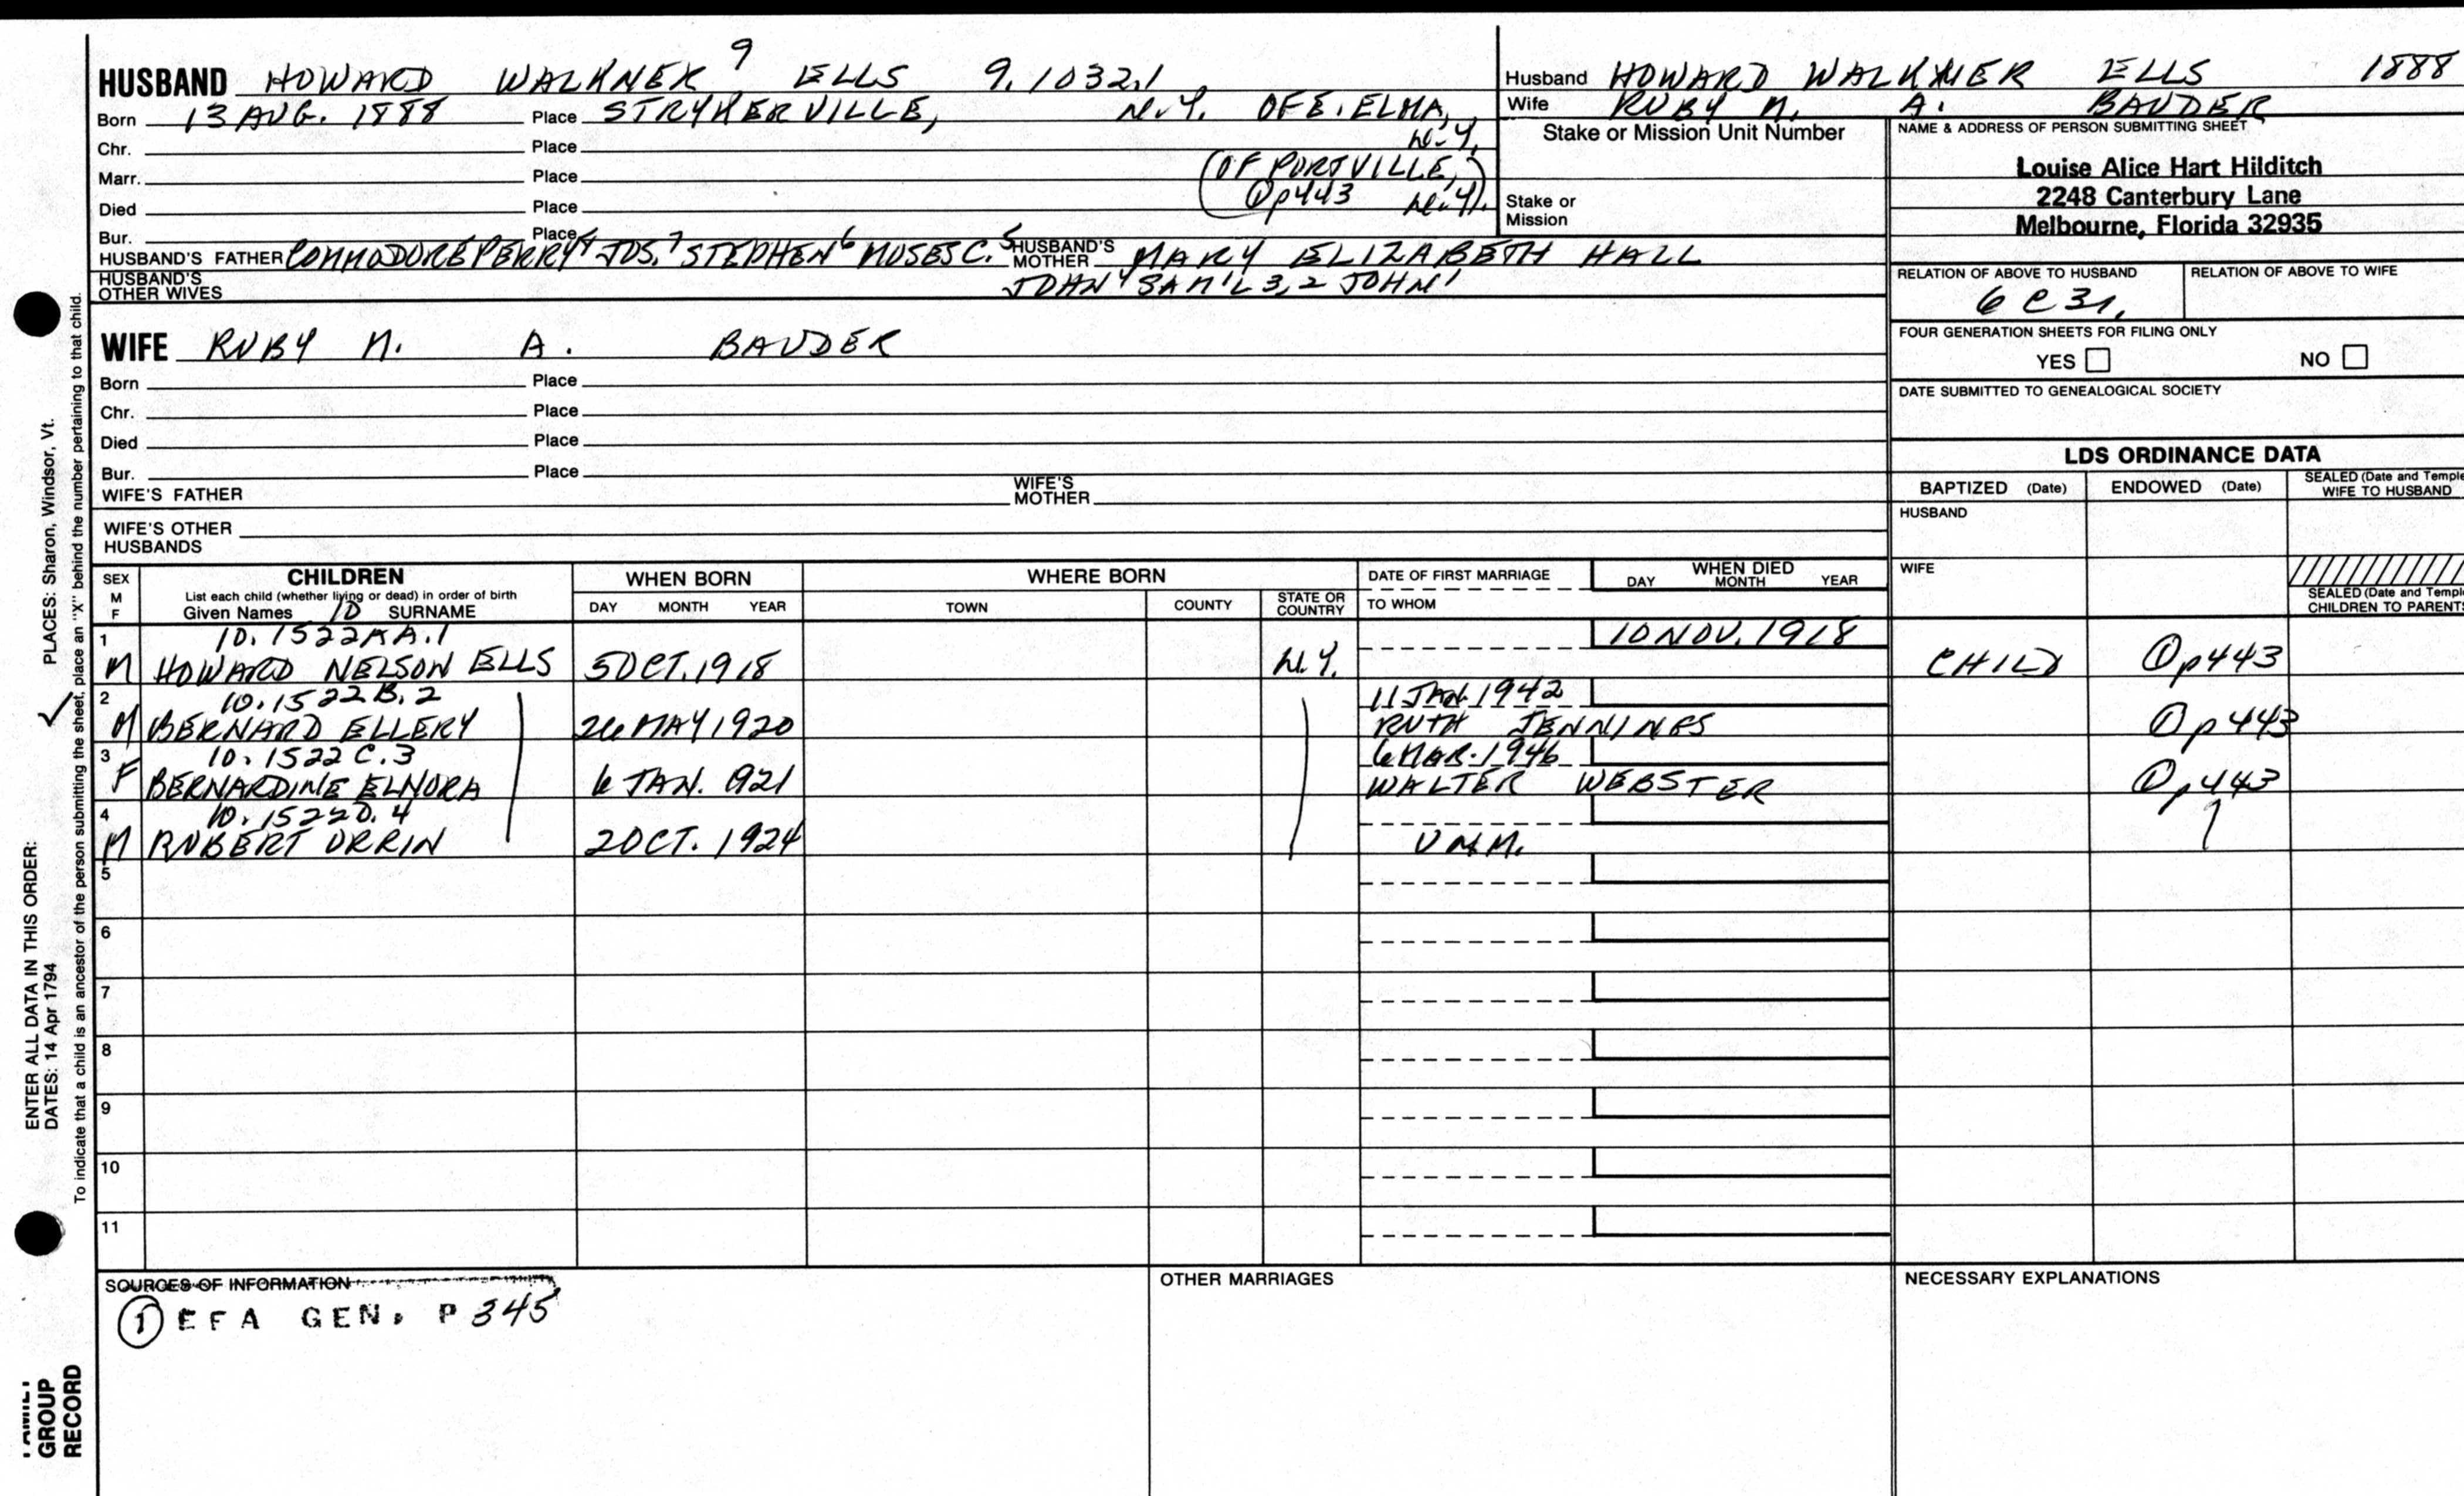 HUSBAND HOWARD WALKNER 9 ELLS 9.1032.1
Born 13 AUG. 1888 Place STRYKERVILLE, N.Y. OF E. ELMA, N.Y.
Chr. Place
Marr. Place (OF PORTVILLE, N.Y.)
Died Place ① p443
Bur. Place
HUSBAND'S FATHER COMMODORE PERRY JOS. 7 STEPHEN 6 MOSES C. 5 HUSBAND'S MOTHER MARY ELIZABETH HALL
HUSBAND'S OTHER WIVES JOHN 4 SAM'L 3,2 JOHN 1
WIFE RUBY M. A. BAUDER
Born Place
Chr. Place
Died Place
Bur. Place
WIFE'S FATHER WIFE'S MOTHER
WIFE'S OTHER HUSBANDS
Husband HOWARD WALKNER ELLS 1888
Wife RUBY M. A. BAUDER
Stake or Mission Unit Number
Stake or Mission
NAME & ADDRESS OF PERSON SUBMITTING SHEET
Louise Alice Hart Hilditch
2248 Canterbury Lane
Melbourne, Florida 32935
RELATION OF ABOVE TO HUSBAND RELATION OF ABOVE TO WIFE
6 C 3r.
FOUR GENERATION SHEETS FOR FILING ONLY
YES NO
DATE SUBMITTED TO GENEALOGICAL SOCIETY
LDS ORDINANCE DATA
BAPTIZED (Date) ENDOWED (Date) SEALED (Date and Temple WIFE TO HUSBAND
HUSBAND
WIFE
SEALED (Date and Temple CHILDREN TO PARENTS
SEX M F CHILDREN WHEN BORN WHERE BORN DATE OF FIRST MARRIAGE WHEN DIED
List each child (whether living or dead) in order of birth
Given Names 10 SURNAME DAY MONTH YEAR TOWN COUNTY STATE OR COUNTRY TO WHOM DAY MONTH YEAR
1 10.1522AA.1 10 NOV. 1918
M HOWARD NELSON ELLS 5 OCT. 1918 N.Y. CHILD ① p443
2 10.1522B.2 11 JAN. 1942
M BERNARD ELLERY 26 MAY 1920 RUTH JENNINGS ① p443
3 10.1522C.3 6 MAR. 1946
F BERNARDINE ELNORA 6 JAN. 1921 WALTER WEBSTER ① p443
4 10.1522D.4
M ROBERT ORRIN 2 OCT. 1924 UNM.
5
6
7
8
9
10
11
SOURCES OF INFORMATION OTHER MARRIAGES NECESSARY EXPLANATIONS
① EFA GEN. P 345
ENTER ALL DATA IN THIS ORDER:
DATES: 14 Apr 1794 PLACES: Sharon, Windsor, Vt.
To indicate that a child is an ancestor of the person submitting the sheet, place an "X" behind the number pertaining to that child.
FAMILY
GROUP
RECORD